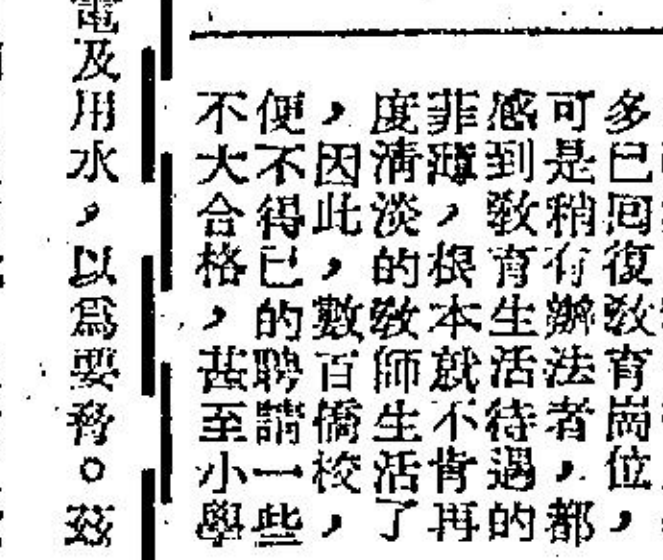 多已囘復敎育崗位，
可是稍有辦法者，都
感到敎育生活待遇的
菲薄，根本就不肯再
度清淡的敎師生活了
，因此，數百僑校，
便不得已的聘請一些
不大合格，甚至小學
電及用水，以爲要脅。茲